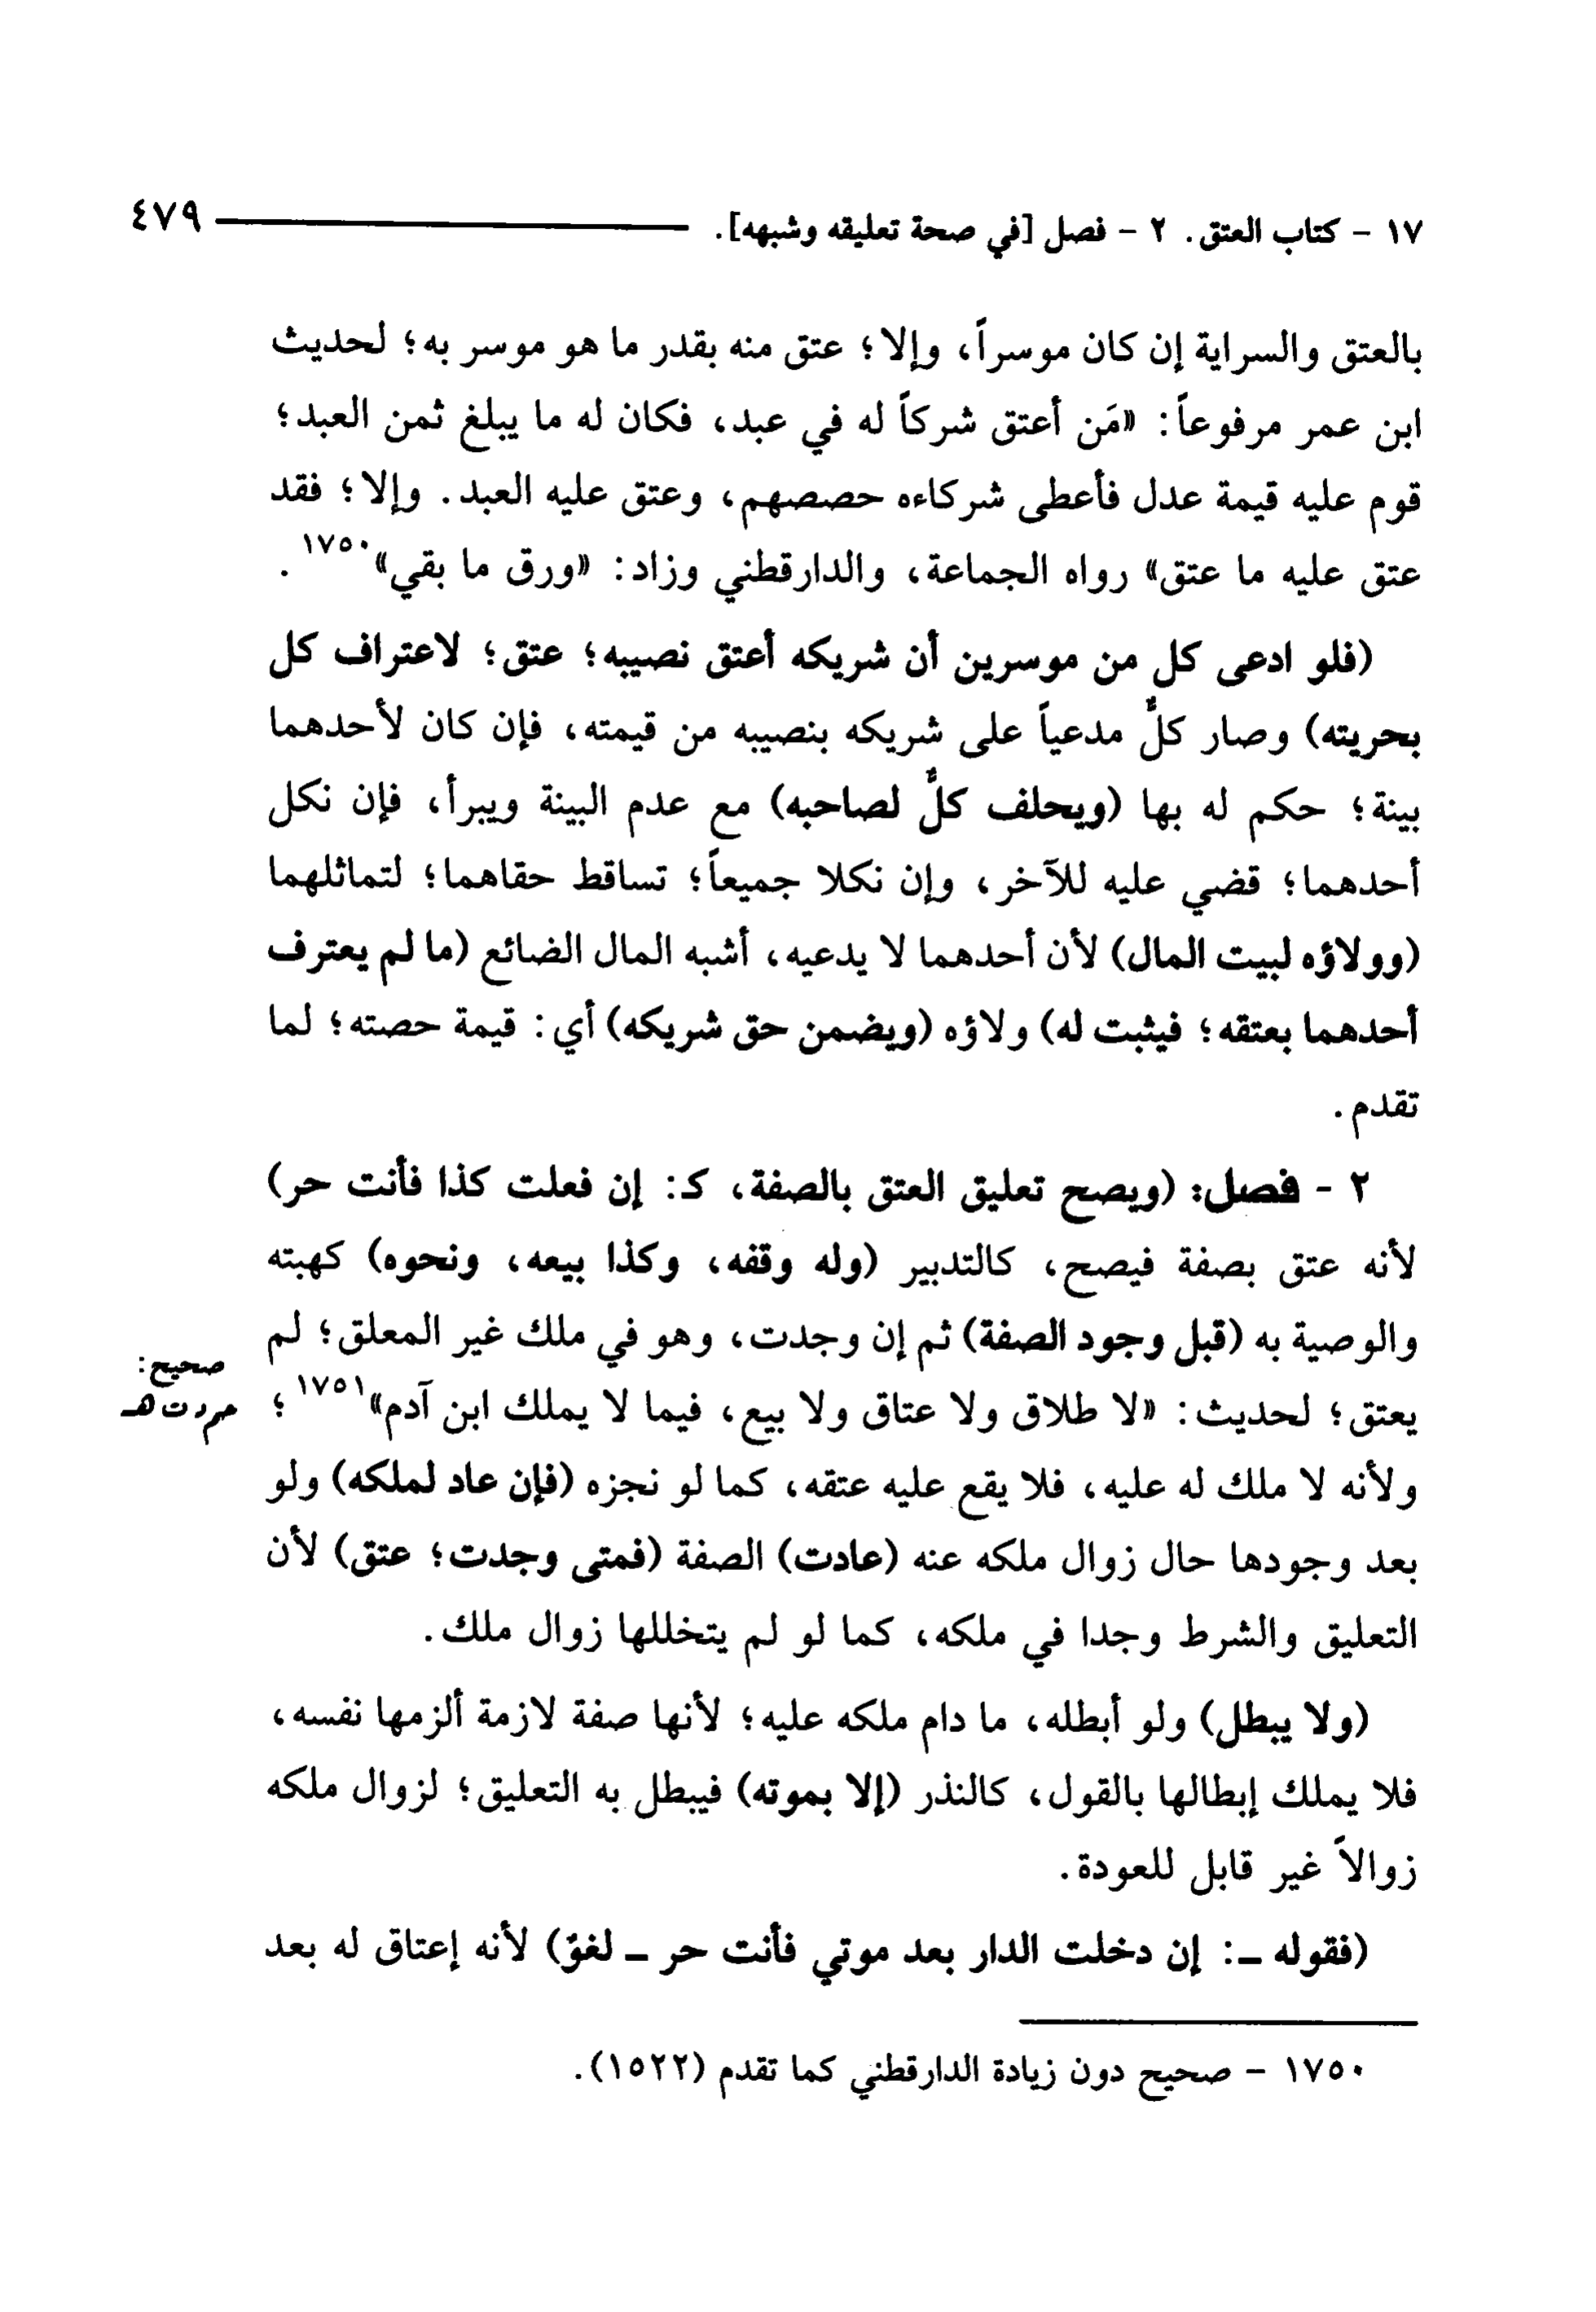 ١٧ - كتاب العتق. ٢ - فصل [في صحة تعليقه وشبهه]. ٤٧٩
بالعتق والسراية إن كان موسراً، وإلا؛ عتق منه بقدر ما هو موسر به؛ لحديث
ابن عمر مرفوعاً: «مَن أعتق شركاً له في عبد، فكان له ما يبلغ ثمن العبد؛
قوم عليه قيمة عدل فأعطى شركاءه حصصهم، وعتق عليه العبد. وإلا؛ فقد
عتق عليه ما عتق» رواه الجماعة، والدارقطني وزاد: «ورق ما بقي»١٧٥٠.
(فلو ادعى كل من موسرين أن شريكه أعتق نصيبه؛ عتق؛ لاعتراف كل
بحريته) وصار كلٌّ مدعياً على شريكه بنصيبه من قيمته، فإن كان لأحدهما
بينة؛ حكم له بها (ويحلف كلٌّ لصاحبه) مع عدم البينة ويبرأ، فإن نكل
أحدهما؛ قضي عليه للآخر، وإن نكلا جميعاً؛ تساقط حقاهما؛ لتماثلهما
(وولاؤه لبيت المال) لأن أحدهما لا يدعيه، أشبه المال الضائع (ما لم يعترف
أحدهما بعتقه؛ فيثبت له) ولاؤه (ويضمن حق شريكه) أي: قيمة حصته؛ لما
تقدم.
٢ - فصل: (ويصح تعليق العتق بالصفة، كـ: إن فعلت كذا فأنت حر)
لأنه عتق بصفة فيصح، كالتدبير (وله وقفه، وكذا بيعه، ونحوه) كهبته
والوصية به (قبل وجود الصفة) ثم إن وجدت، وهو في ملك غير المعلق؛ لم
صحيح:
يعتق؛ لحديث: «لا طلاق ولا عتاق ولا بيع، فيما لا يملك ابن آدم»١٧٥١؛
ولأنه لا ملك له عليه، فلا يقع عليه عتقه، كما لو نجزه (فإن عاد لملكه) ولو
بعد وجودها حال زوال ملكه عنه (عادت) الصفة (فمتى وجدت؛ عتق) لأن
التعليق والشرط وجدا في ملكه، كما لو لم يتخللها زوال ملك.
(ولا يبطل) ولو أبطله، ما دام ملكه عليه؛ لأنها صفة لازمة ألزمها نفسه،
فلا يملك إبطالها بالقول، كالنذر (إلا بموته) فيبطل به التعليق؛ لزوال ملكه
زوالاً غير قابل للعودة.
(فقوله ــ: إن دخلت الدار بعد موتي فأنت حر ــ لغوٌ) لأنه إعتاق له بعد
١٧٥٠ - صحيح دون زيادة الدارقطني كما تقدم (١٥٢٢).